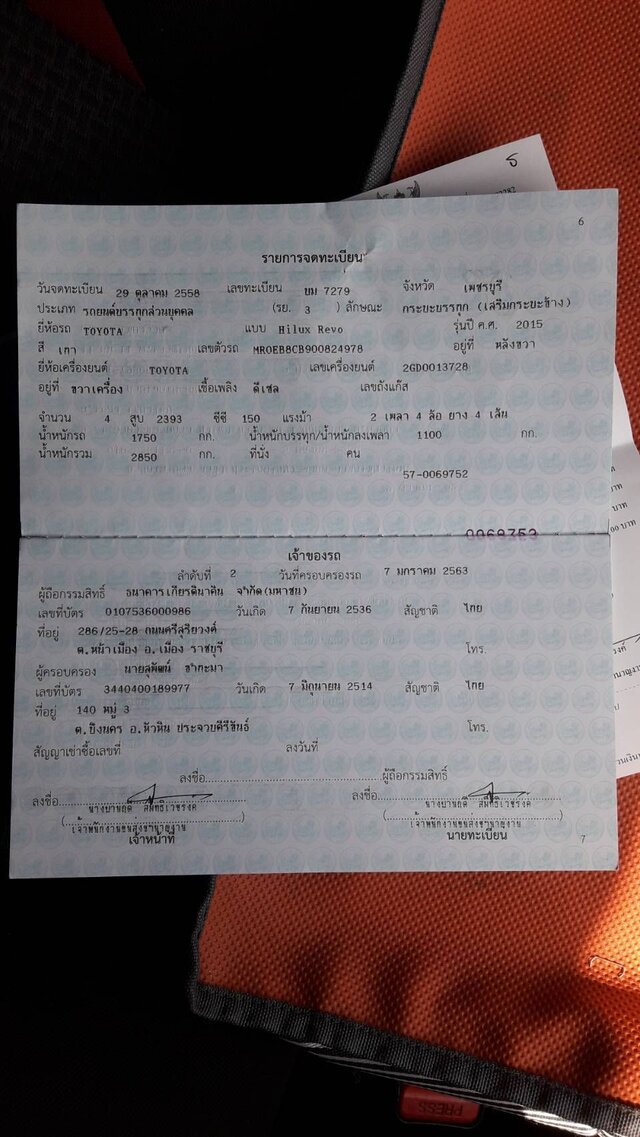 ธ
6
รายการจดทะเบียน
วันจดทะเบียน 29 ตุลาคม 2558 เลขทะเบียน บม 7279 จังหวัด เพชรบุรี
ประเภท รถยนต์บรรทุกส่วนบุคคล (รย. 3 ) ลักษณะ กระบะบรรทุก (เสริมกระบะข้าง)
ยี่ห้อรถ TOYOTA แบบ Hilux Revo รุ่นปี ค.ศ. 2015
สี เทา เลขตัวรถ MR0EB8CB900824978 อยู่ที่ หลังขวา
ยี่ห้อเครื่องยนต์ TOYOTA เลขเครื่องยนต์ 2GD0013728
อยู่ที่ ขวาเครื่อง เชื้อเพลิง ดีเซล เลขถังแก๊ส
จำนวน 4 สูบ 2393 ซีซี 150 แรงม้า 2 เพลา 4 ล้อ ยาง 4 เส้น
น้ำหนักรถ 1750 กก. น้ำหนักบรรทุก/น้ำหนักลงเพลา 1100 กก.
น้ำหนักรวม 2850 กก. ที่นั่ง คน
57-0069752
0069753
เจ้าของรถ
ลำดับที่ 2 วันที่ครอบครองรถ 7 มกราคม 2563
ผู้ถือกรรมสิทธิ์ ธนาคารเกียรตินาคิน จำกัด(มหาชน)
เลขที่บัตร 0107536000986 วันเกิด 7 กันยายน 2536 สัญชาติ ไทย
ที่อยู่ 286/25-28 ถนนศรีสุริยวงศ์
ต.หน้าเมือง อ.เมือง ราชบุรี โทร.
ผู้ครอบครอง นายสุพัฒน์
เลขที่บัตร 3440400189977 วันเกิด 7 มิถุนายน 2514 สัญชาติ ไทย
ที่อยู่ 140 หมู่ 3
ต.บึงนคร อ.หัวหิน ประจวบคีรีขันธ์ โทร.
สัญญาเช่าซื้อเลขที่ ลงวันที่
ลงชื่อ ผู้ถือกรรมสิทธิ์
ลงชื่อ ลงชื่อ
(เจ้าพนักงานขนส่งชำนาญงาน) (เจ้าพนักงานขนส่งชำนาญงาน)
เจ้าหน้าที่ นายทะเบียน
7
PRESS